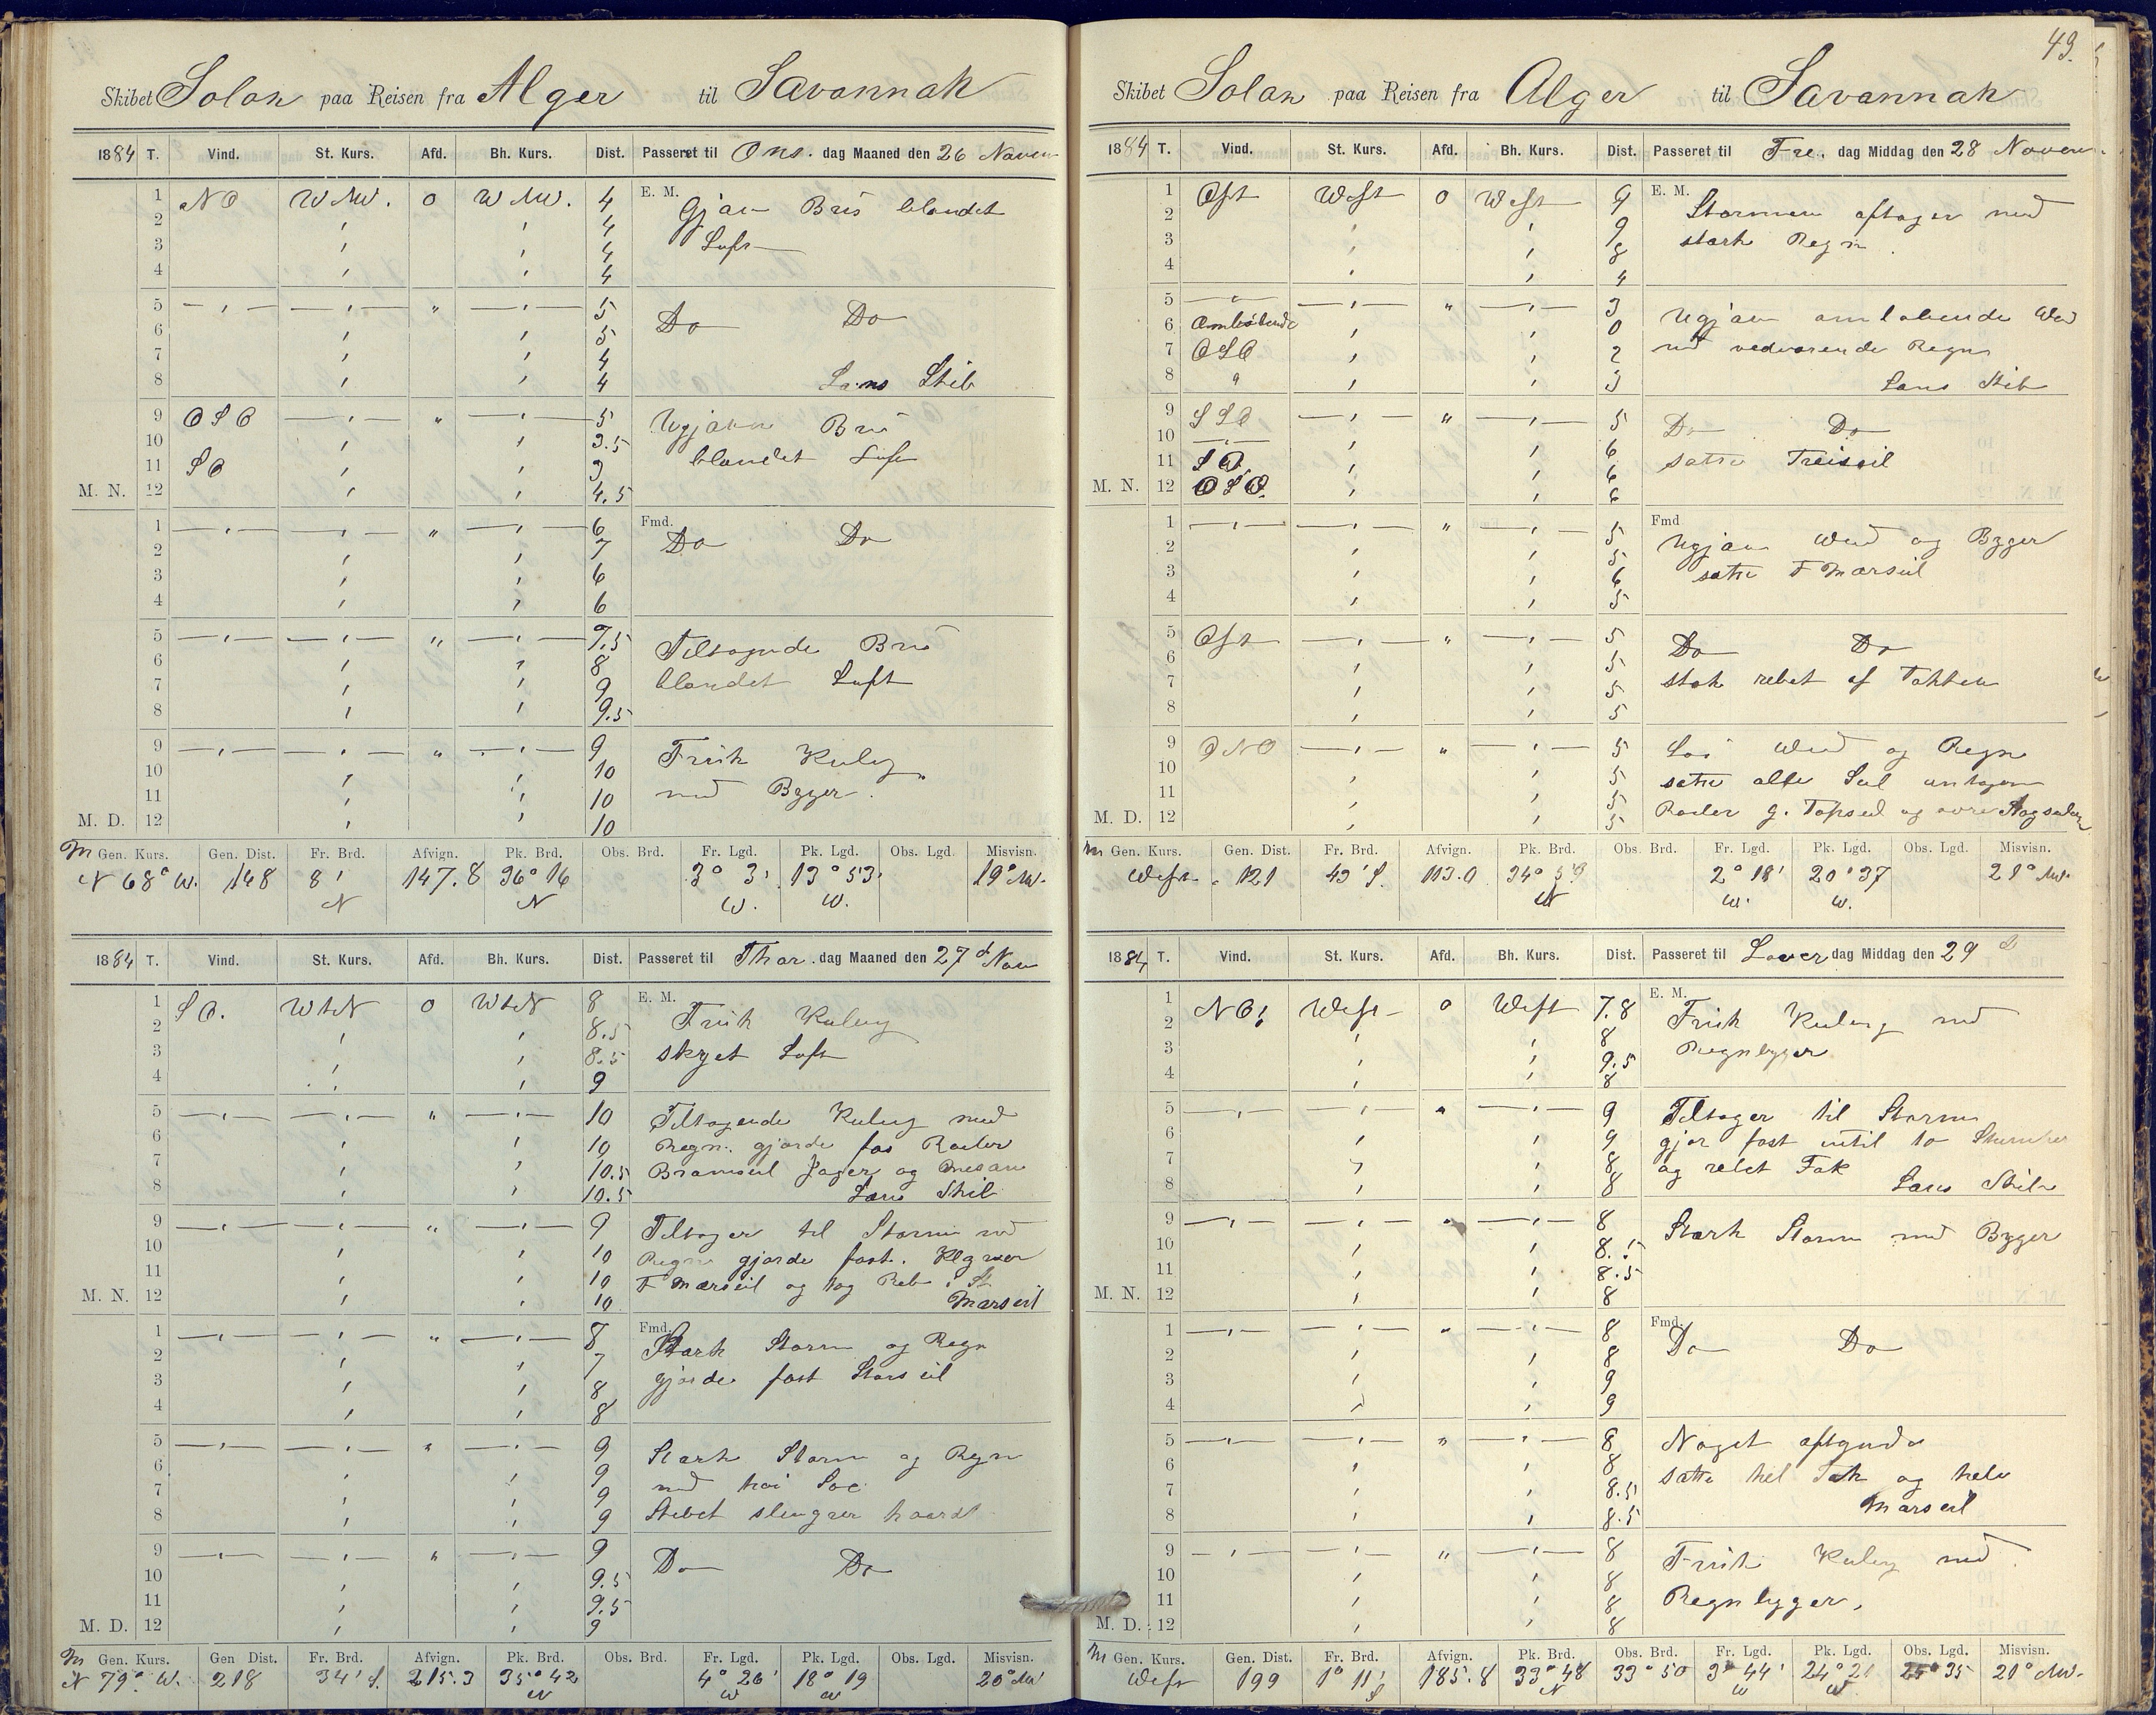 Skibet Solon paa Reisen fra Alger til Savannah
1884 T. Vind. St. Kurs. Afd. Bh. Kurs. Dist. Passeret til Ons. dag Maaned den 26 Novem
1 NO WNW. 0 WNW. 4 E. M. Gjævn Bris blandet
2 4 Luft
3 4
4 4
5 5 Do Do
6 5
7 4
8 4 Læns Skib
9 OSO 5 Ugjævn Bris
10 3.5 blandet Luft
11 SO 3
M. N. 12 4.5
1 6 Fmd. Do Do
2 7
3 6
4 6
5 7.5 Tiltagende Bris
6 8 blandet Luft
7 9
8 9.5
9 9 Frisk Kuling
10 10 med Byger.
11 10
M. D. 12 10
M Gen. Kurs. Gen. Dist. Fr. Brd. Afvign. Pk. Brd. Obs. Brd. Fr. Lgd. Pk. Lgd. Obs. Lgd. Misvisn.
N 68° W. 148 8' 147.8 36° 16 3° 3' 13° 53' 19° NW.
N N W. W.
1884 T. Vind. St. Kurs. Afd. Bh. Kurs. Dist. Passeret til Thor. dag Maaned den 27 d Nov
1 SO. WtN 0 WtN 8 E. M. Frisk Kuling
2 8.5 skyet Luft
3 8.5
4 9
5 10 Tiltagende Kuling med
6 10 Regn. gjorde fas Røiler
7 10.5 Bramseil Jager og Mesan
8 10.5 Læns Skib
9 9 Tiltager til Storm med
10 10 Regn gjorde fast. Klyver
11 10 F Mærseil og tog Reb i St.
M. N. 12 10 Mærseil
1 8 Fmd. Stærk Storm og Regn
2 7 gjorde fast Storseil
3 8
4 8
5 9 Stærk Storm og Regn
6 9 med høi Søe
7 9 Skibet slingrer haardt
8 9
9 9 Do Do
10 9.5
11 9.5
M. D. 12 9
M Gen. Kurs. Gen Dist. Fr. Brd. Afvign. Pk. Brd. Obs. Brd. Fr. Lgd. Pk. Lgd. Obs. Lgd. Misvisn.
N 79° W. 218 34' S. 215.3 35° 42 4° 26' 18° 19 20° NW
N W W
49.
Skibet Solon paa Reisen fra Alger til Savannah
1884 T. Vind. St. Kurs. Afd. Bh. Kurs. Dist. Passeret til Fre. dag Middag den 28 Novem
1 Ost West 0 West 9 E. M. Stormen aftager med
2 9 stærk Regn.
3 8
4 4
5 3 Ugjævn omløbende Vind
6 Omløbende 0 med vedvarende Regn
7 OSO 2
8 " 3 Læns Skib
9 SSO 5 Do Do
10 6 satte Treiseil
11 SO 6
M. N. 12 OSO. 6
1 5 Fmd Ugjævn Vind og Byger
2 5 satte F Mærseil
3 6
4 5
5 Ost 5 Do Do
6 5 stak rebet af Fokken
7 5
8 5
9 ONO 5 Løi Vind og Regn
10 5 satte alle Seil untagen
11 5 Røiler g. Topseil og øvre Stagseiler
M. D. 12 5
M Gen. Kurs. Gen. Dist. Fr. Brd. Afvign. Pk. Brd. Obs. Brd. Fr. Lgd. Pk. Lgd. Obs. Lgd. Misvisn.
West 121 43' S. 113.0 34° 59 2° 18' 20° 37 21° NW.
N W. W.
1884 T. Vind. St. Kurs. Afd. Bh. Kurs. Dist. Passeret til Løver dag Middag den 29 d
1 NO. West 0 West 7.8 E. M. Frisk Kuling med
2 8 Regnbyger
3 9.5
4 8
5 9 Tiltager til Storm
6 9 gjør fast intil to
7 8 og rebet Fok
8 8 Læns Skib
9 8 Stærk Storm med Byger
10 8.5
11 8.5
M. N. 12 8
1 8 Fmd. Do Do
2 8
3 9
4 9
5 8 Noget aftagende
6 8 satte hel Fok og hele
7 8.5 Mærseil
8 8.5
9 8 Frisk Kuling med
10 8 Regnbyger.
11 8
M. D. 12 8
M Gen. Kurs. Gen. Dist. Fr. Brd. Afvign. Pk. Brd. Obs. Brd. Fr. Lgd. Pk. Lgd. Obs. Lgd. Misvisn.
West 199 1° 11' 185.8 33° 48 33° 50 3° 44' 24° 21 25° 35 21° NW.
S N W W